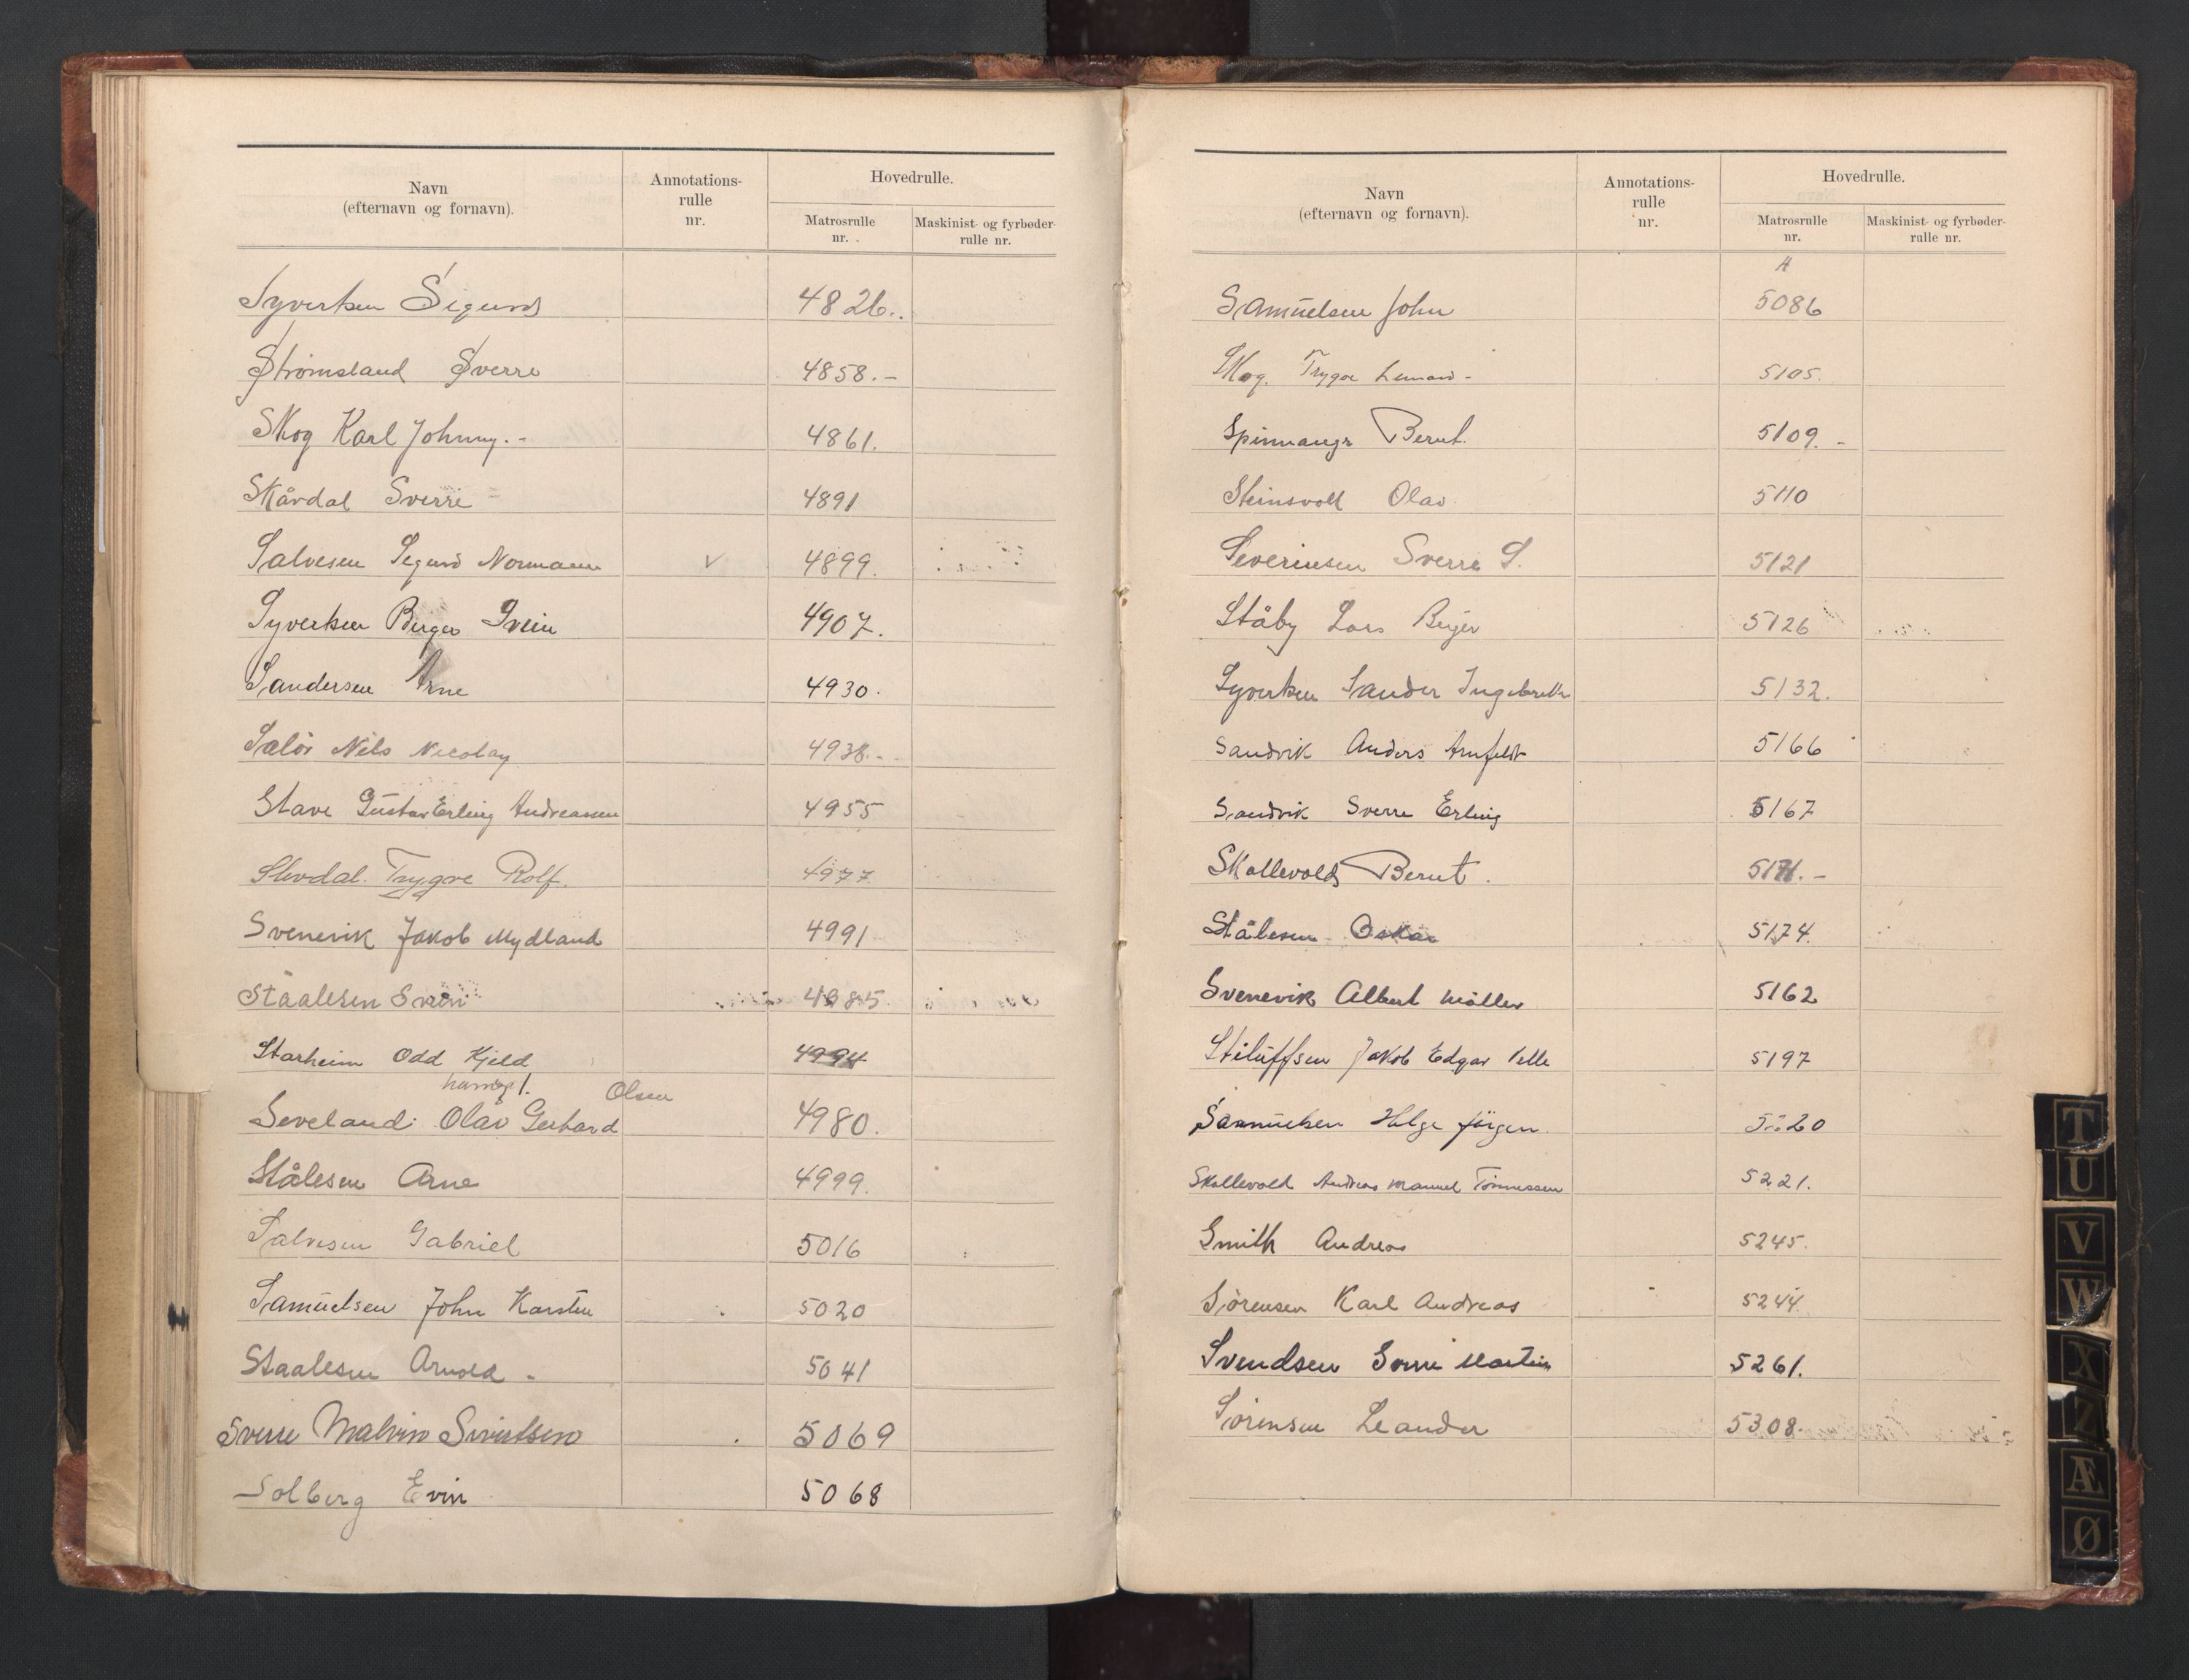 Navn
(efternavn og fornavn).
Annotations-
rulle
nr.
Hovedrulle.
Matrosrulle
nr.
Maskinist- og fyrbøder-
rulle nr.
Syvertsen Sigurd 4826.
Strømsland Sverre 4858.-
Skog Karl Johnny.- 4861.
Skårdal Sverre 4891
Salvesen Sigurd Normann v 4899.
Syvertsen Birger Svein 4907.
Sandersen Arne 4930.
Salør Nils Nicolay 4938.-
Stave Gustav Erling Andreassen 4955
Slevdal. Trygve Rolf. 4977
Svenevik Jakob Mydland 4991
Staalesen Svein 4985
Starheim Odd Kjeld 4994
Olsen
Seveland Olav Gerhard 4980.
Stålesen Arne 4999.
Salvesen Gabriel 5016
Samuelsen John Karsten 5020
Staalesen Arnold - 5041
Sverre Malvin Sivertsen 5069
Solberg Evin 5068
Navn
(efternavn og fornavn).
Annotations-
rulle
nr.
Hovedrulle.
Matrosrulle
nr.
Maskinist- og fyrbøder-
rulle nr.
Samuelsen John 5086
Skog. Trygve 5105.
Spinnangr Bernt. 5109.-
Steinsvoll Olav 5110
Severinsen Sverre S. 5121
Ståby Lars Birger 5126
Syvertsen Sander 5132.
Sandvik Anders Arnfeldt 5166
Sandvik Sverre Erling 5167
Skollevold Bernt. 5171.-
Stålesen Oskar 5174.
Svenevik Albert Møller 5162
Stiluffsen Jakob Edgar 5197
Samuelsen Helge Jørgen. 5220
Skollevold Andreas Manuel Tønnessen 5221.
Smith Andreas 5245.
Sørensen Karl Andreas 5244.
Svendsen Martin 5261.
Sørensen Leander 5308.
T
U
V
W
X
Z
Æ
Ø